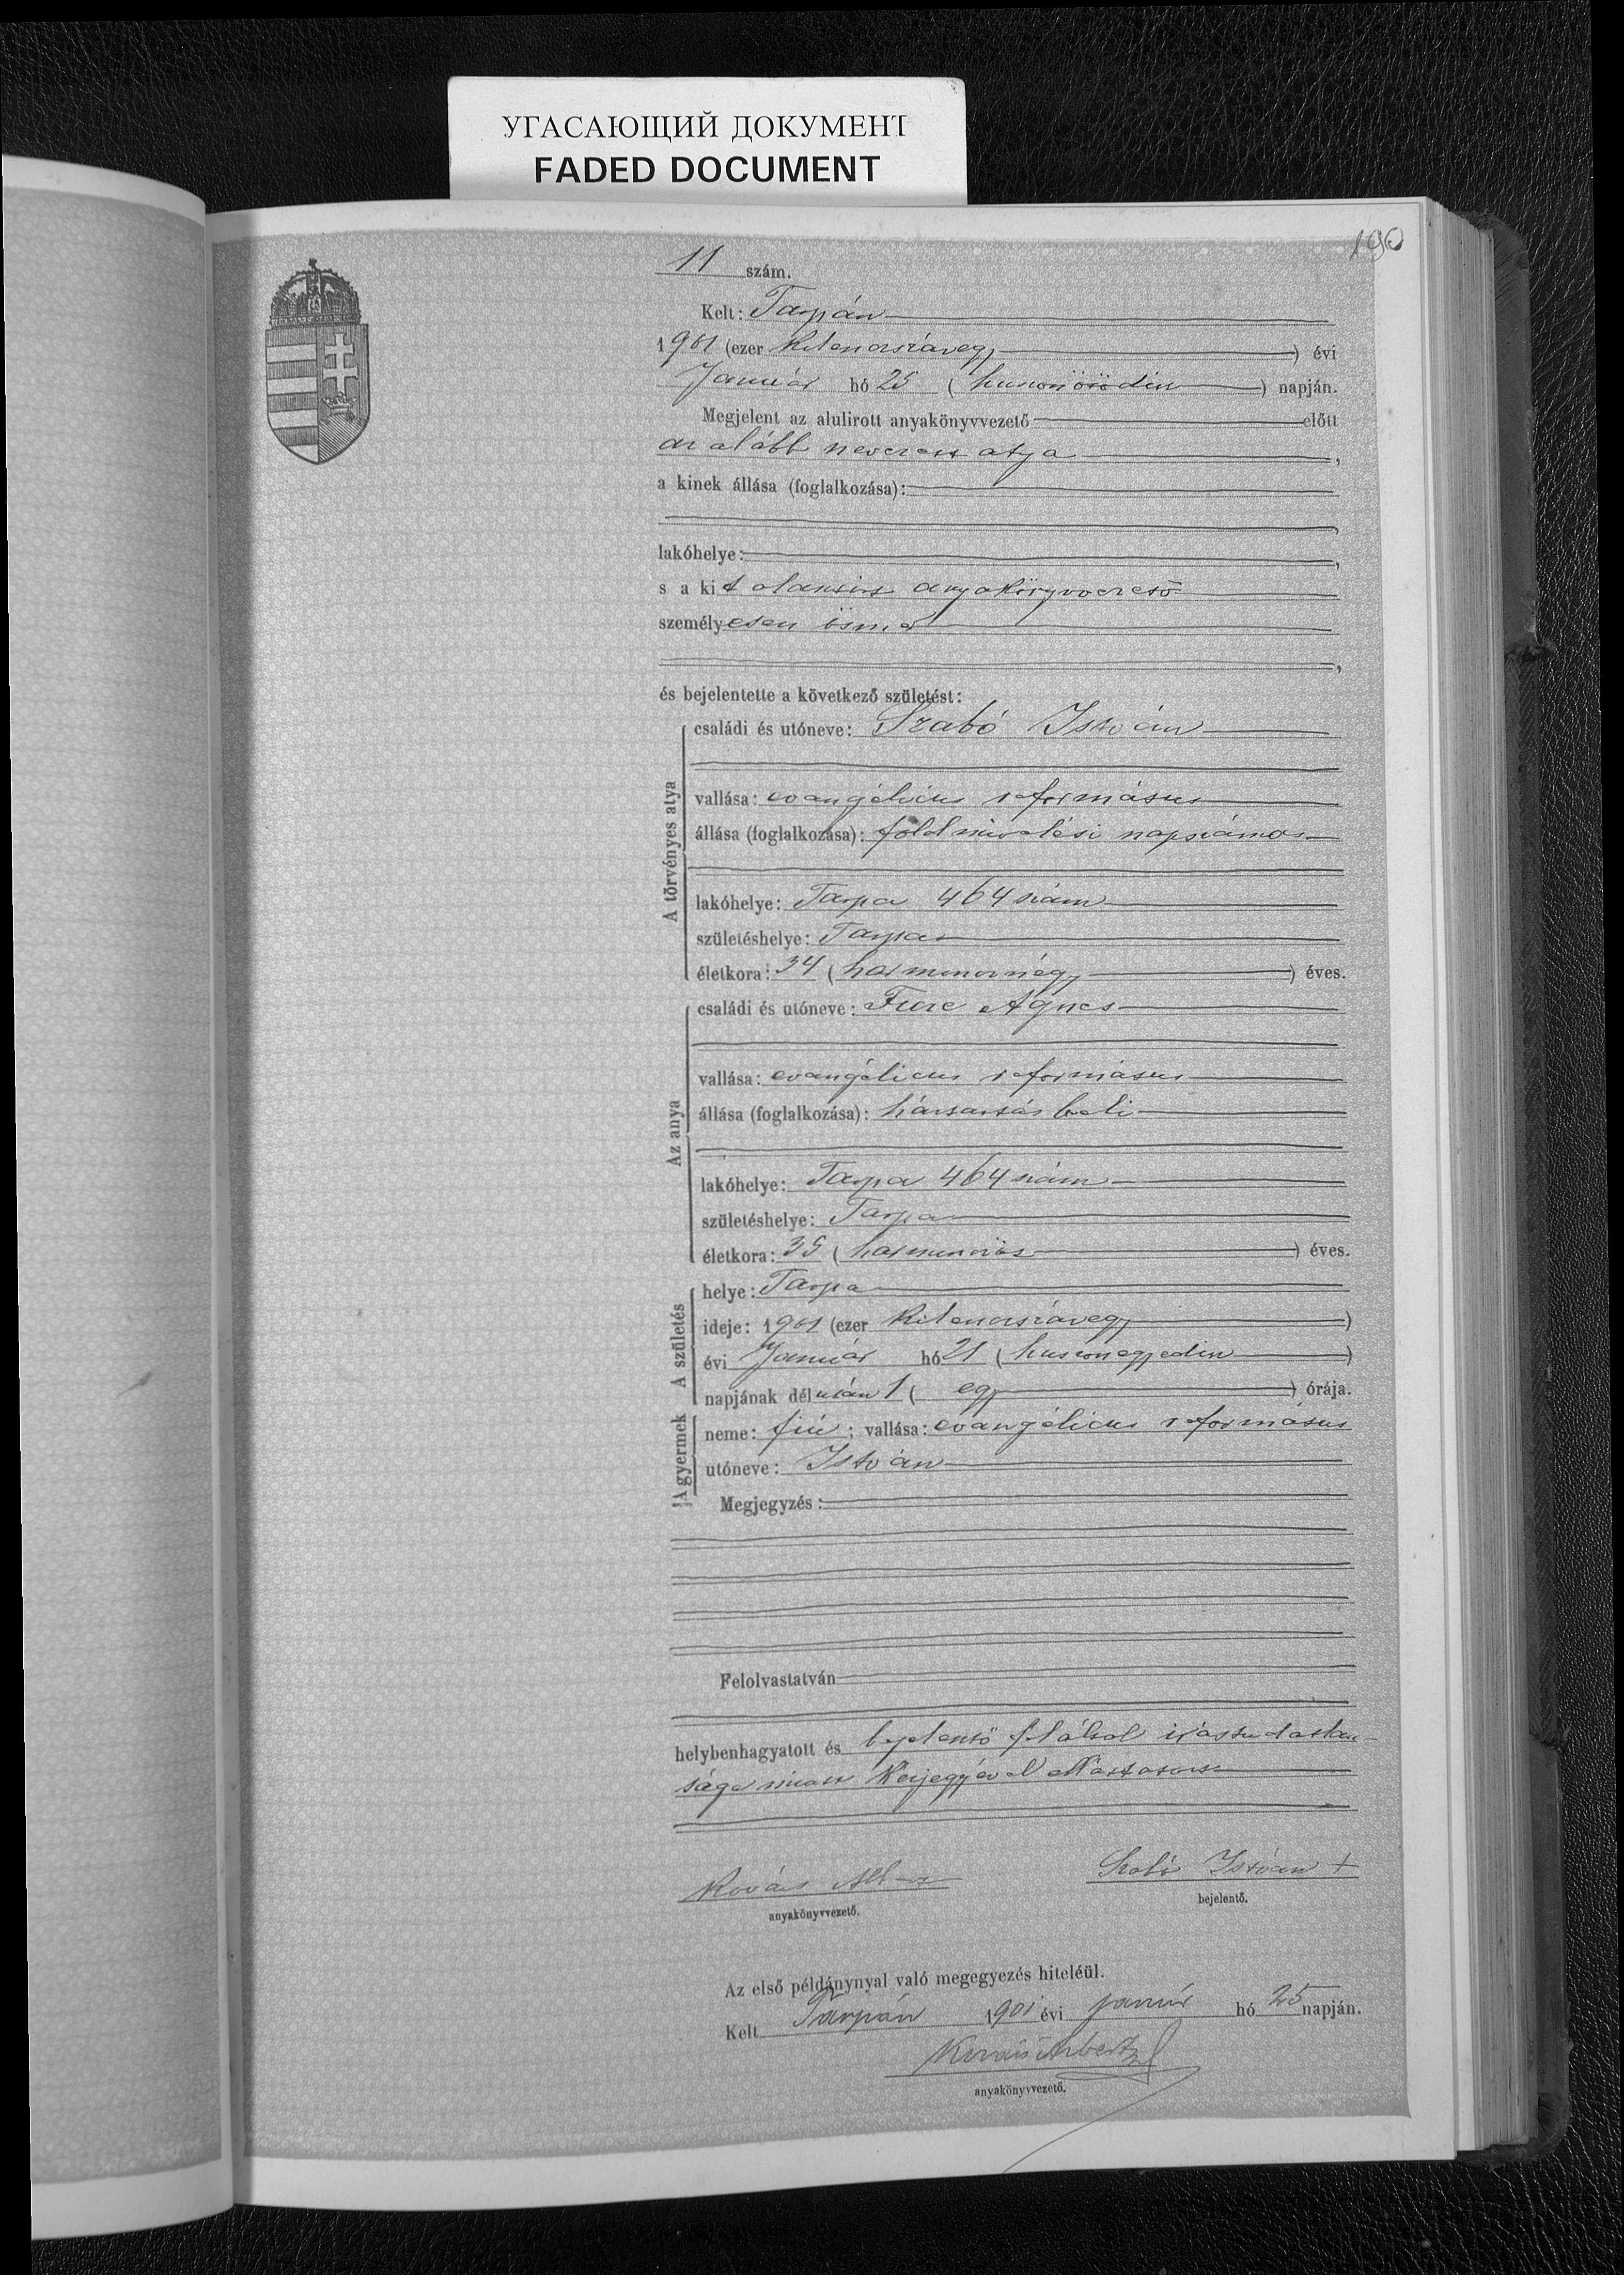 УГАСАЮЩИЙ ДОКУМЕНТ
FADED DOCUMENT
190
11 szám.
Kelt: Tarpán
1901 (ezer kilenczszázegy) évi
Január hó 25 (huszonötödin) napján.
Megjelent az alulirott anyakönyvvezető előtt
az alább nevezett atya,
a kinek állása (foglalkozása):
lakóhelye:
s a kit alantirt anyakönyvvezető
személyesen ismer
és bejelentette a következő születést:
A törvényes atya
családi és utóneve: Szabó István
vallása: evangélicus református
állása (foglalkozása): földmivelési napszámos
lakóhelye: Tarpa 464 szám
születéshelye: Tarpa
életkora: 34 (harmincznégy) éves.
Az anya
családi és utóneve: Ágnes
vallása: evangélicus református
állása (foglalkozása): háztartásbeli
lakóhelye: Tarpa 464 szám
születéshelye: Tarpa
életkora: 35 (harminczöt) éves.
A születés
helye: Tarpa
ideje: 1901 (ezer kilenczszázegy)
évi Január hó 21 (huszonegyedin)
napjának délután 1 (egy) órája.
A gyermek
neme: fiú; vallása: evangélicus református
utóneve: István
Megjegyzés:
Felolvastatván
helybenhagyatott és bejelentő által irástudatlan-
sága miatt kézjegyével elláttatott
Kovács Albert
anyakönyvvezető.
Szabó István +
bejelentő.
Az első példánynyal való megegyezés hiteléül.
Kelt Tarpán 1901 évi január hó 25 napján.
Kovács Albert
anyakönyvvezető.